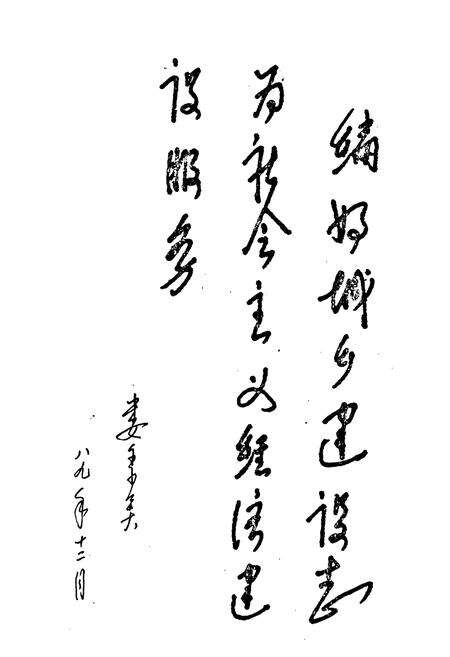 编好城乡建设志
为社会主义经济建
设服务
八九年十二月